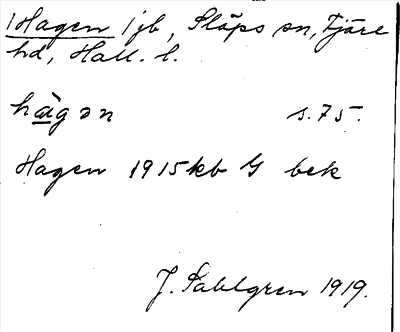 Hagen 1 jb, Släps sn, Fjäre
hd, Hall. l.
hàgən s. 75.
Hagen 1915 kb G bek
J. Sahlgren 1919.